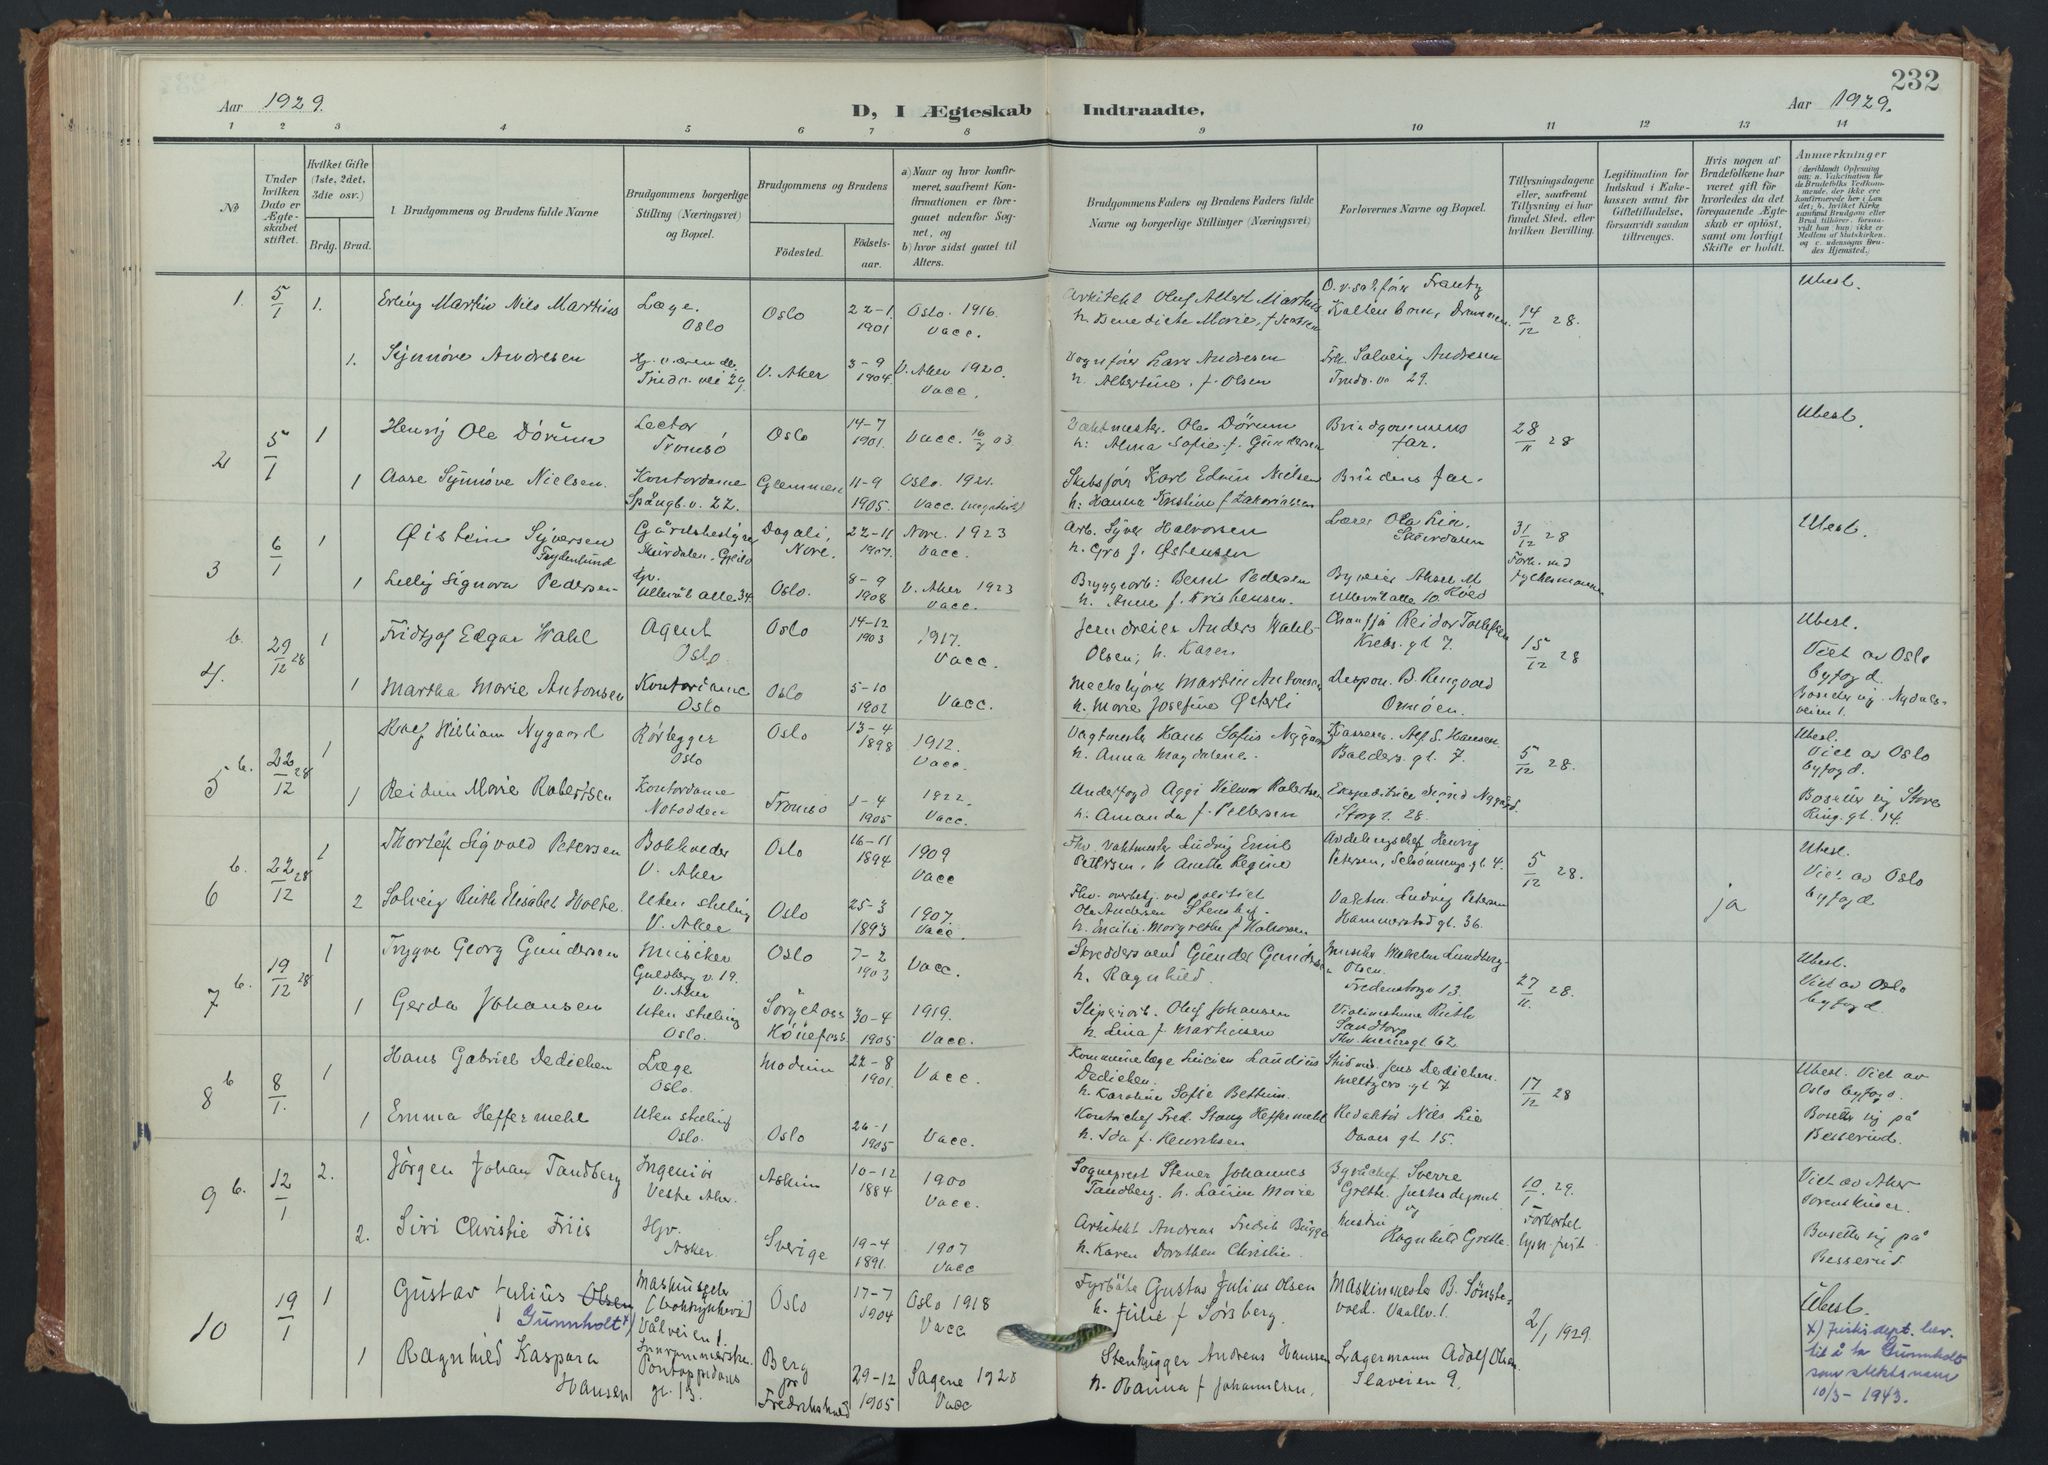 232
Aar 1929.
D, I Ægteskab Indtraadte.
Aar 1929.
1 2 3 4 5 6 7 8 9 10 11 12 13 14
No
Under hvilken Dato er Ægteskabet stiftet.
Hvilket Gifte (1ste, 2det, 3die osv.)
Brdg. Brud.
1. Brudgommens og Brudens fulde Navne
Brudgommens borgerlige Stilling (Næringsvei) og Bopæl.
Brudgommens og Brudens
Födested.
Födselsaar.
a) Naar og hvor konfirmeret, saafremt Konfirmationen er foregaaet udenfor Sognet, og
b) hvor sidst gaaet til Alters.
Brudgommens Faders og Brudens Faders fulde Navne og borgerlige Stillinger (Næringsvei)
Forlovernes Navne og Bopæl.
Tillysningsdagene eller, saafremt Tillysning ei har fundet Sted, efter hvilken Bevilling.
Legitimation for Indskud i Enkekassen samt for Giftetilladelse, forsaavidt saadan tiltrænges.
Hvis nogen af Brudefolkene har været gift før hvorledes da det foregaaende Ægteskab er opløst, samt om lovligt Skifte er holdt.
Anmærkninger
1. 5/1 1. Erling Martin Nils Martins Læge. Oslo Oslo 22-1 1901 Oslo. 1916. Vacc.
Arkitekt Oluf Albert Martins
h. Benedicte Marie, f.
14/12 28. Ubesl.
1. Synnöve Andresen V. Aker 3-9 1904. V. Aker 1920. Vacc.
Vognfører Lars Andresen
h. Albertine. f. Olsen
Frk. Solveig Andresen 29.
2 5/1 1 Henry Ole Dörum Lector Tromsö Oslo 14-7 1901. Vacc. 03
Vaktmester. Ole Dörum
h: Alma Sofie f. Gundersen
Brudgommens far.
28/11 28 Ubesl.
1 Aase Synnöve Nielsen. Kontordame Spångb. v. 22. Glemmen 11-9 1905. Oslo. 1921. Vacc.
Skibsfører Karl Edvin Nielsen
h: Hanna Kristine f
Brudens far.
3 6/1 1 Øistein Syversen Frydenlund Gårdsbestyrer Skurdalen, Geilo Dagali, Nore. 22-11 1907. Nore. 1923 Vacc.
Arb. Syver Halvorsen
h. Gro f. Østensen
Lærer Ola Lia. Skurdalen
31/12 28 Ubesl.
1 Lilly Signora Pedersen Hjv. Ullevål alle 34. Oslo. 8-9 1908 V. Aker 1923 Vacc.
Bryggearb: Bernt Pedersen
h. Anne f. Kristiansen.
Ullevål alle 10.
4. b. 29/12 28 1 Fridtjof Edgar Wahl Agent Oslo. Oslo 14-12 1903 1917. Vacc.
Anders Wahl-Olsen; h. Karen
Krebs. gt 7.
15/12 28 Ubesl. Viet av Oslo byfogd.
1 Martha Marie Antonsen Kontordame Oslo Oslo 5-10 1902 Vacc.
Martin Antonsen
h. Marie Josefine Österli
Despon. B. Ringvold Ormöen.
Bosetter sig. Nydalsveien 1.
5 b. 22/12 28 1 William Nygaard Rørlegger Oslo Oslo 13-4 1898 1912. Vacc.
Vagtmester Hans Sofus Nygaard
h. Anna Magdalene.
Kasserer. Alf S. Hansen. Balders. gt. 7.
5/12 28. Ubesl. Viet av Oslo byfogd.
1 Reidun Marie Robertsen Kontordame Notodden Tromsö 1-4 1905 1922. Vacc.
Underfogd Aggi Hilmar Robertsen
h. Amanda f. Pettersen
Ekspeditrice Nygård. Storg t. 28.
Bosetter sig Store Ring. gt. 14.
6 b. 22/12 28 1 Thorleif Sigvald Petersen Bokholder V. Aker Oslo 16-11 1894 1909 Vacc
Fhv. Vaktmester Ludvig Emil Petersen, h Anette Regine
Avdelingschef Henrig Petersen, Schønnings gt. 4.
5/12 28. Ubesl. Viet av Oslo byfogd
2 Solveig Ruth Elisabet Holte. Uten stilling V. Aker Oslo 25-3 1893 1907. Vacc.
Fhv. overbetj. ved politiet
Ole Andersen
h. Emilie Margrethe f Halvorsen
Vaktm. Ludvig Petersen Hammerstad gt. 36.
ja
7 b. 19/12 28 1 Trygve Georg Gundersen Musiker Guldberg v. 19. V. Aker Oslo 7-2 1903 Vacc.
Skreddersvend Gunder Gundersen
h. Ragnhild.
Musiker Wilhelm Lundberg-Olsen. Fredensborgv 13.
27/11 28. Ubesl. Viet av Oslo byfogd.
1 Gerda Johansen Uten stilling Oslo. Hönefoss. 30-4 1905 1919. Vacc.
Sliperiarb. Olaf Johansen
h. Lina f Martinsen
Violinistinne Ruth Sandtorp
Thv. Meiersgt 62.
8 b 8/1. 1 Hans Gabriel Dedichen Læge Oslo. Modum 22-8 1901. Vacc.
Kommunelæge Lucien Laudius Dedichen.
h. Karoline Sofie Bettum.
Jens Dedichen. Meltzers. gt 7
17/12 28 Ubesl. Viet av Oslo byfogd.
1 Emma Heffermehl Uten stilling Oslo. Oslo 26-1 1905 Vacc.
Kontorchef Fred. Stang Heffermehl
h. Ida f. Henrichsen
Redaktör Nils Lie Daaes gt. 15.
Bosetter sig på Besserud.
9 b. 12/1 2. Jörgen Johan Tandberg Ingeniör Vestre Aker. Askim 10-12 1884 1900 Vacc.
Sogneprest Stener Johannes Tandberg. h. Laura Marie
Byråchef Sverre Grette. Justisdepmt. og
10/1. 29. Viet av Aker Sorenskriver.
2. Siri Christie Friis Hjv. Asker. Sverige 19-4 1891. 1907 Vacc
Arkitekt Andreas Fredrik Bugge
h. Karen Dorothea Christie.
hustru Ragnhild Grette.
Forkortet lysn. frist
Bosetter sig på Besserud.
10 19/1 1 Gustav Julius Olsen Gunnholt x) Vålveien 1. Oslo 17-7 1904 Oslo 1918 Vacc
Fyrböter Gustav Julius Olsen
h. Julie f Sörberg.
Maskinmester B. Sönstevold. Vaallv. 1.
2/1 1929. Ubesl.
x) Justisdept. bev. til å ta Gunnholt som slektsnavn 10/3-1943.
1 Ragnhild Kaspara Hansen Pontoppidans gt. 13. Berg pr Fredrikshald 29-12 1905 Sagene 1920 Vacc
Stenhugger Andreas Hanssen
h. Hanna f Johannesen.
Lagermann Adolf Olsen 9.